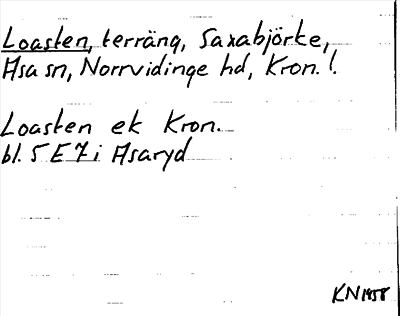 Loasten, terräng, Saxabjörke,
Asa sn, Norrvidinge hd, Kron. l.
Loasten ek Kron.
bl. 5 E 7 i Asaryd
KN 1958